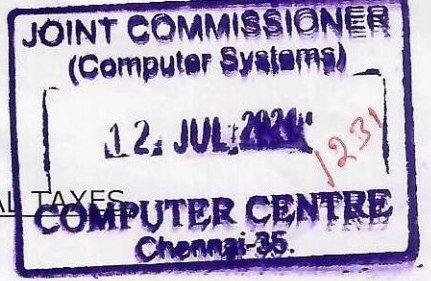 JOINT COMMISSIONER
(Computer Systems)
12 JUL
1231
AL TAXES
COMPUTER CENTRE
Chennai-35.